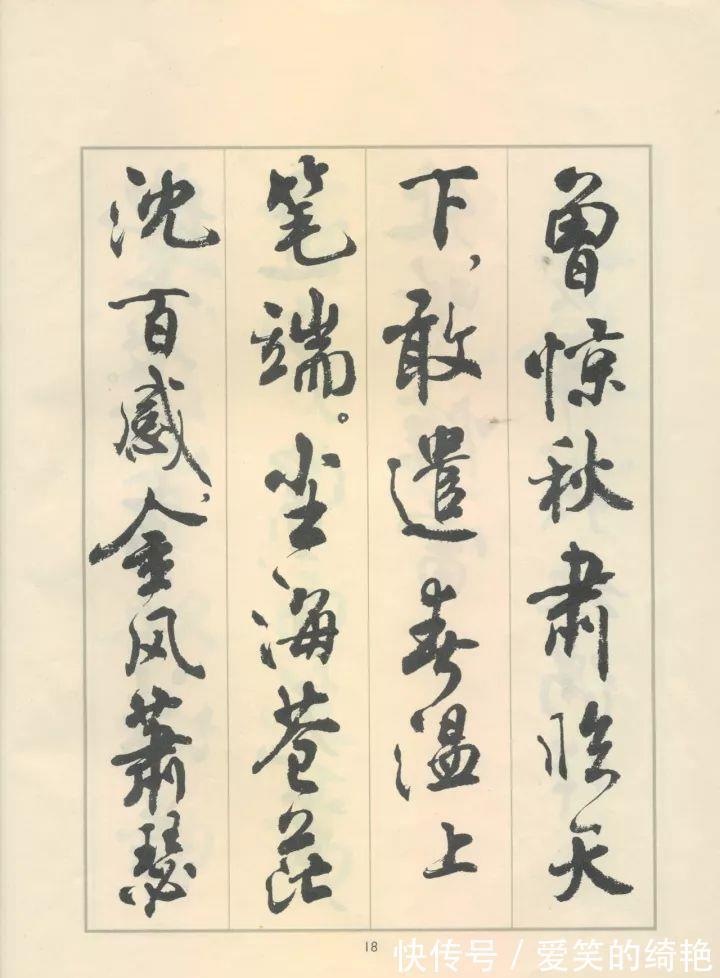 曾惊秋肃临天
下，敢遣春温上
笔端。尘海苍茫
沈百感，金风萧瑟
18
快传号 / 爱笑的绮艳